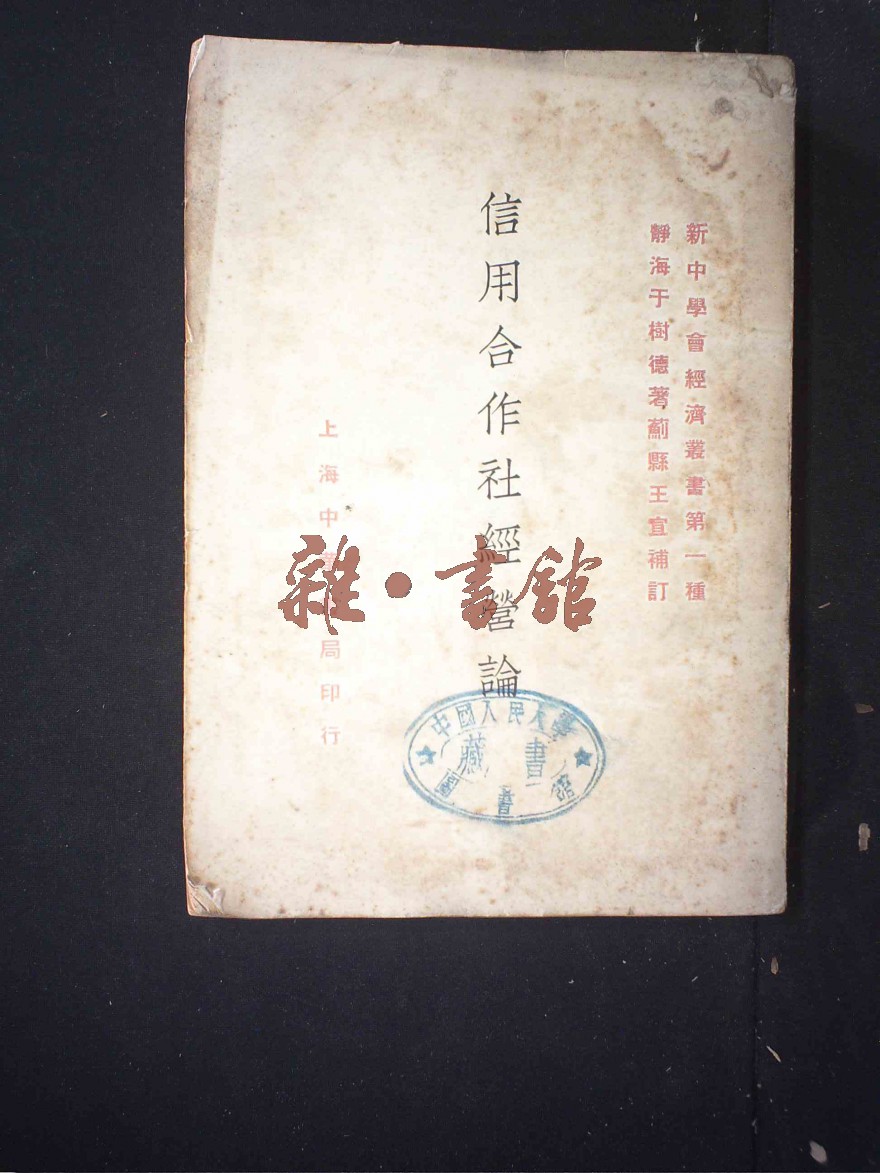 新中學會經濟叢書第一種
靜海于樹德著薊縣王宣補訂
信用合作社經營論
上海中華 局印行
雜·書館
中國人民大學
藏書
圖書館